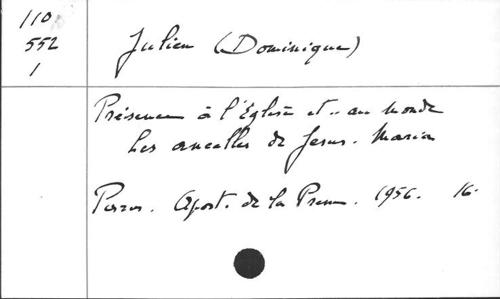 110
552
1
Julien (Dominique)
Présence à l'Eglise et .. au Monde
Les ancelles de Jesus. Maria
Apost. de la Presse. 1956. 16.